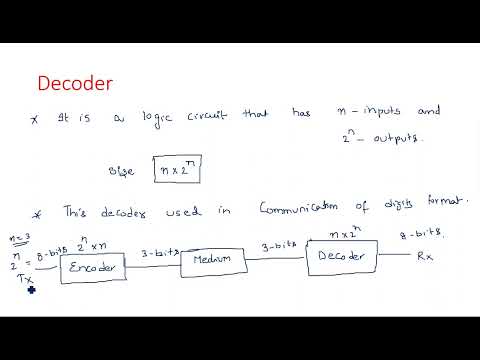 Decoder
* It is a logic circuit that has n-inputs and
2^n - outputs.
Size n x 2^n
* This decoder used in Communication of digits format.
n=3
2^n = 8-bits 2^n x n 3-bits 3-bits n x 2^n 8-bits.
Tx Encoder Medium Decoder Rx